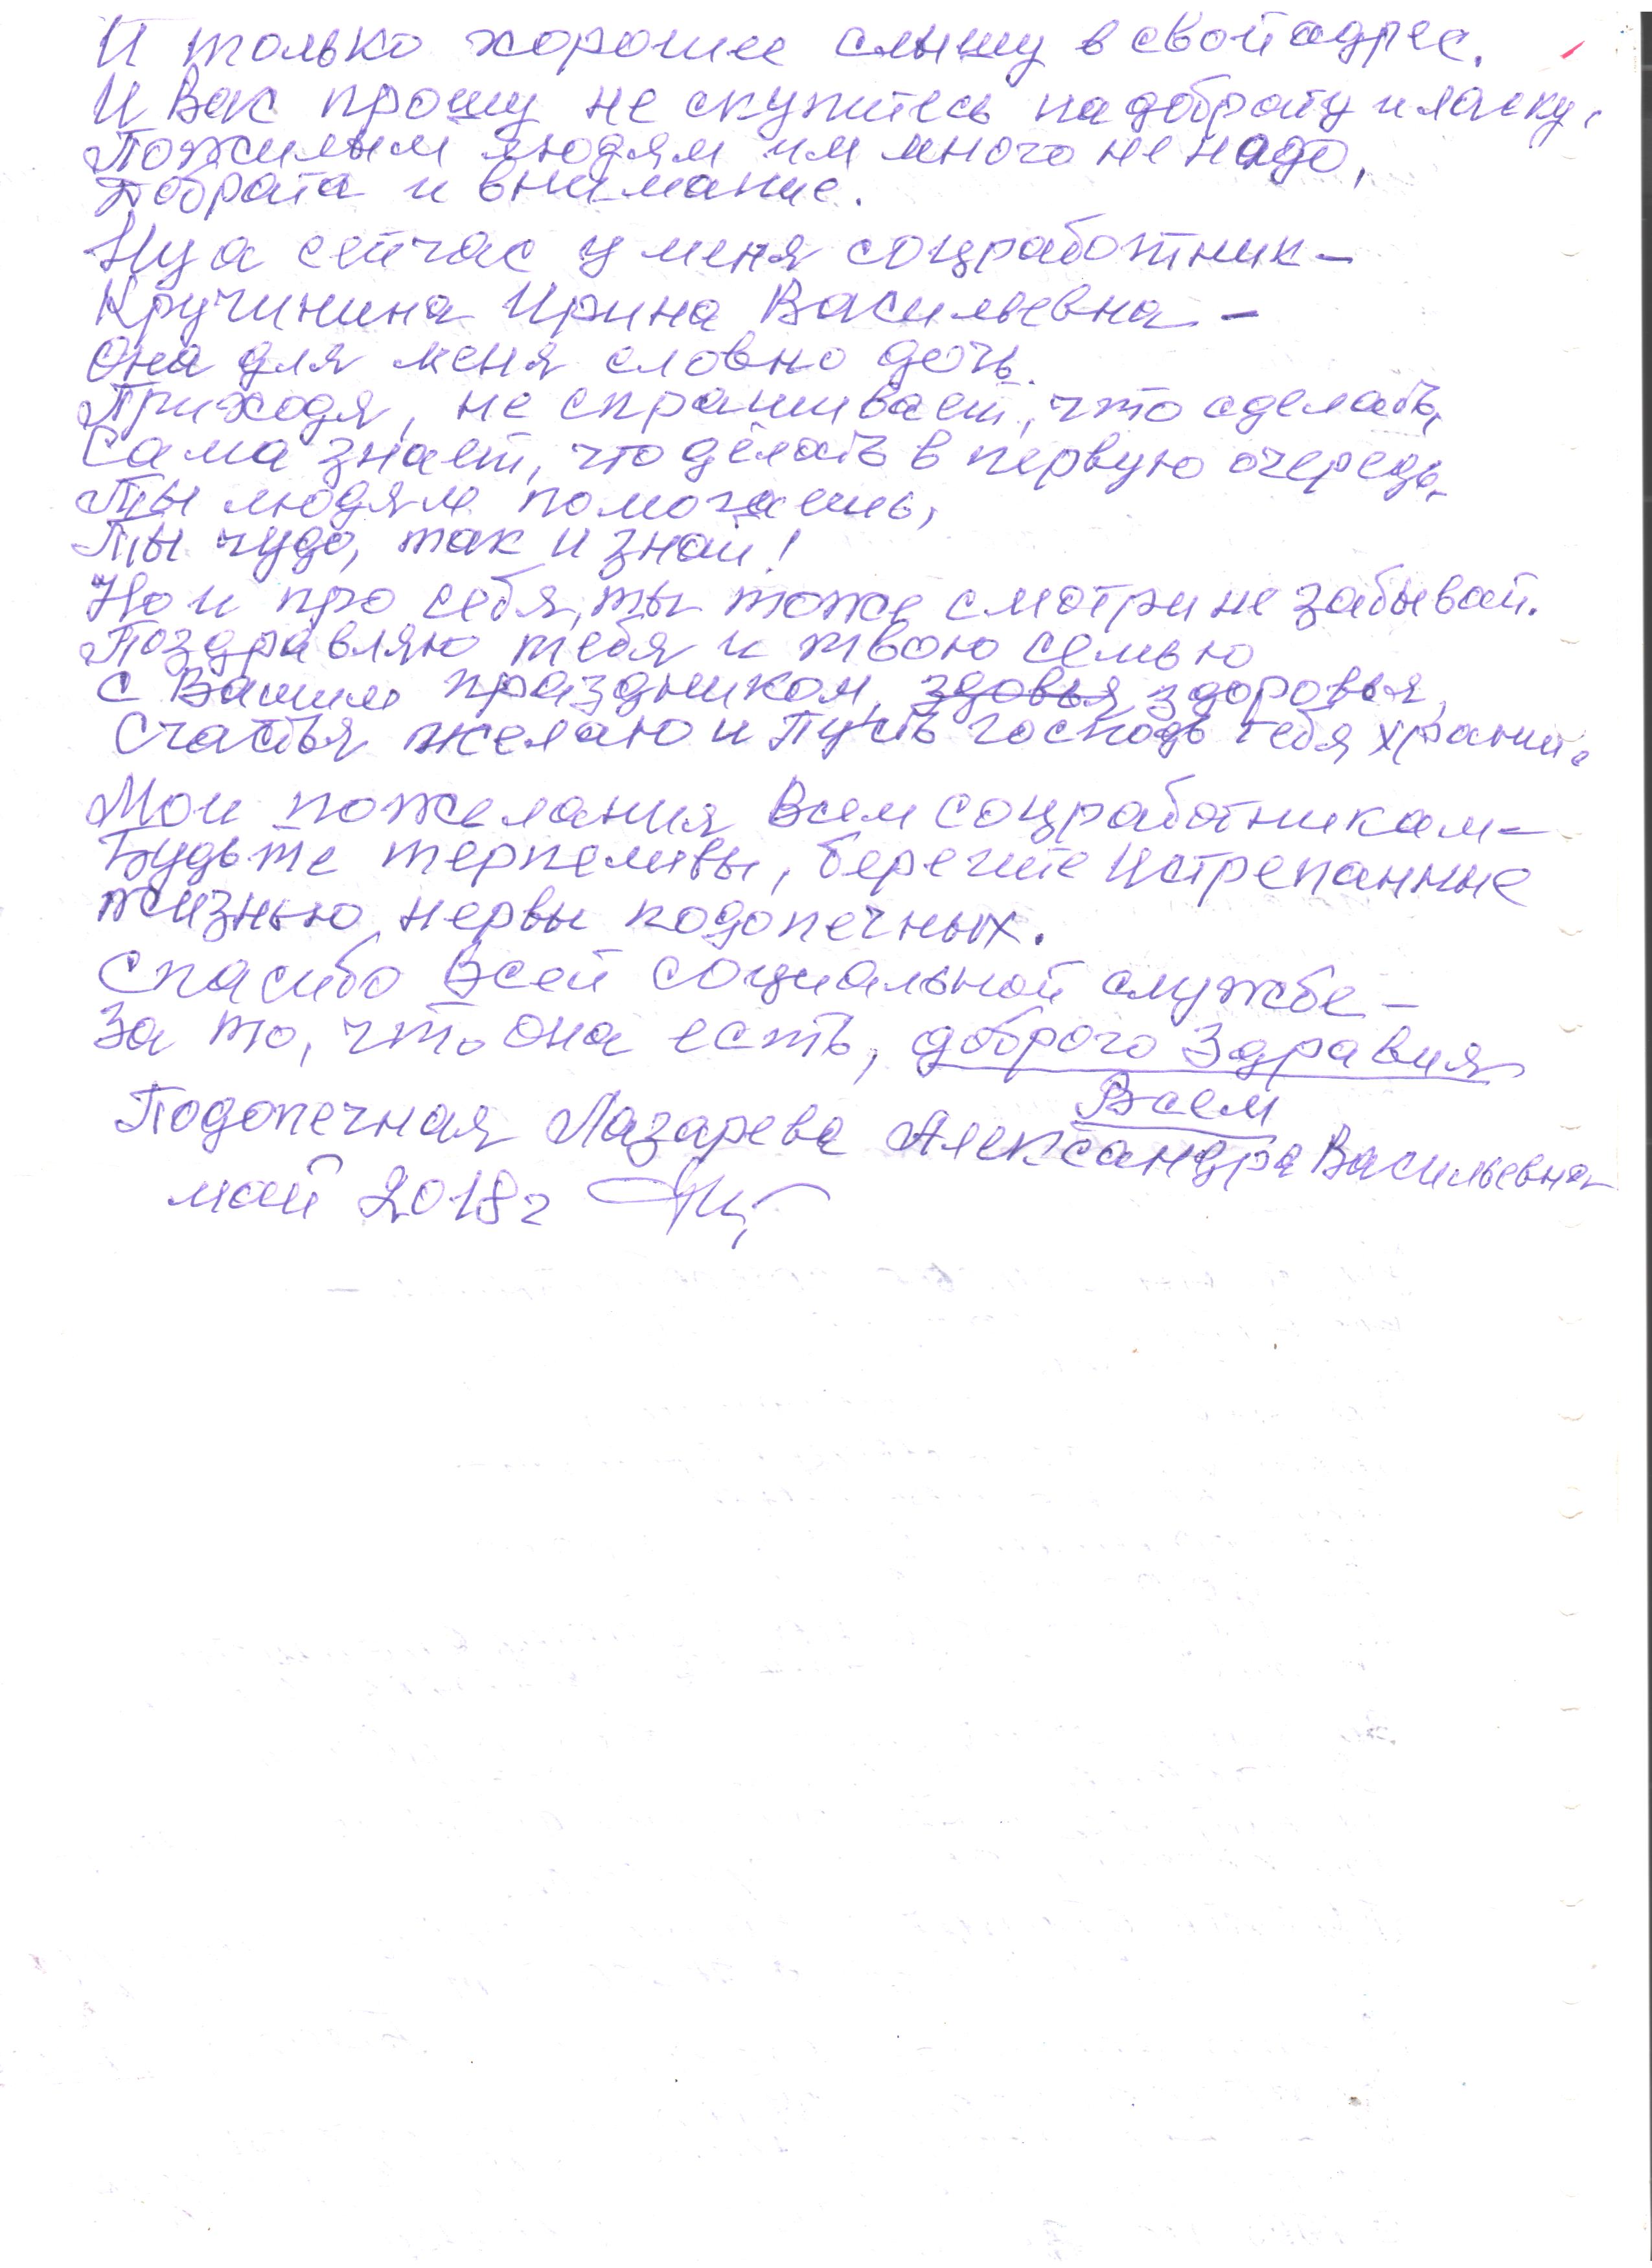 И только хорошее слышу в свой адрес.
И Вас прошу не скупитесь на доброту и ласку,
Пожилым людям им много не надо,
Доброта и внимание.
Ну а сейчас у меня соцработник -
Кручинина Ирина Васильевна -
Она для меня словно дочь.
Приходя, не спрашивает, что сделать,
Сама знает, что делать в первую очередь.
Ты людям помогаешь,
Ты чудо, так и знай!
Но и про себя, ты тоже смотри не забывай.
Поздравляю тебя и твою семью
с Вашим праздником, здовья здоровья,
Счастья желаю и Пусть господь тебя хранит.
Мои пожелания Всем соцработникам -
Будьте терпеливы, берегите Истрепанные
жизнью нервы подопечных.
Спасибо Всей социальной службе -
За то, что она есть, доброго Здравия
Всем
Подопечная Лазарева Александра Васильевна
май 2018г